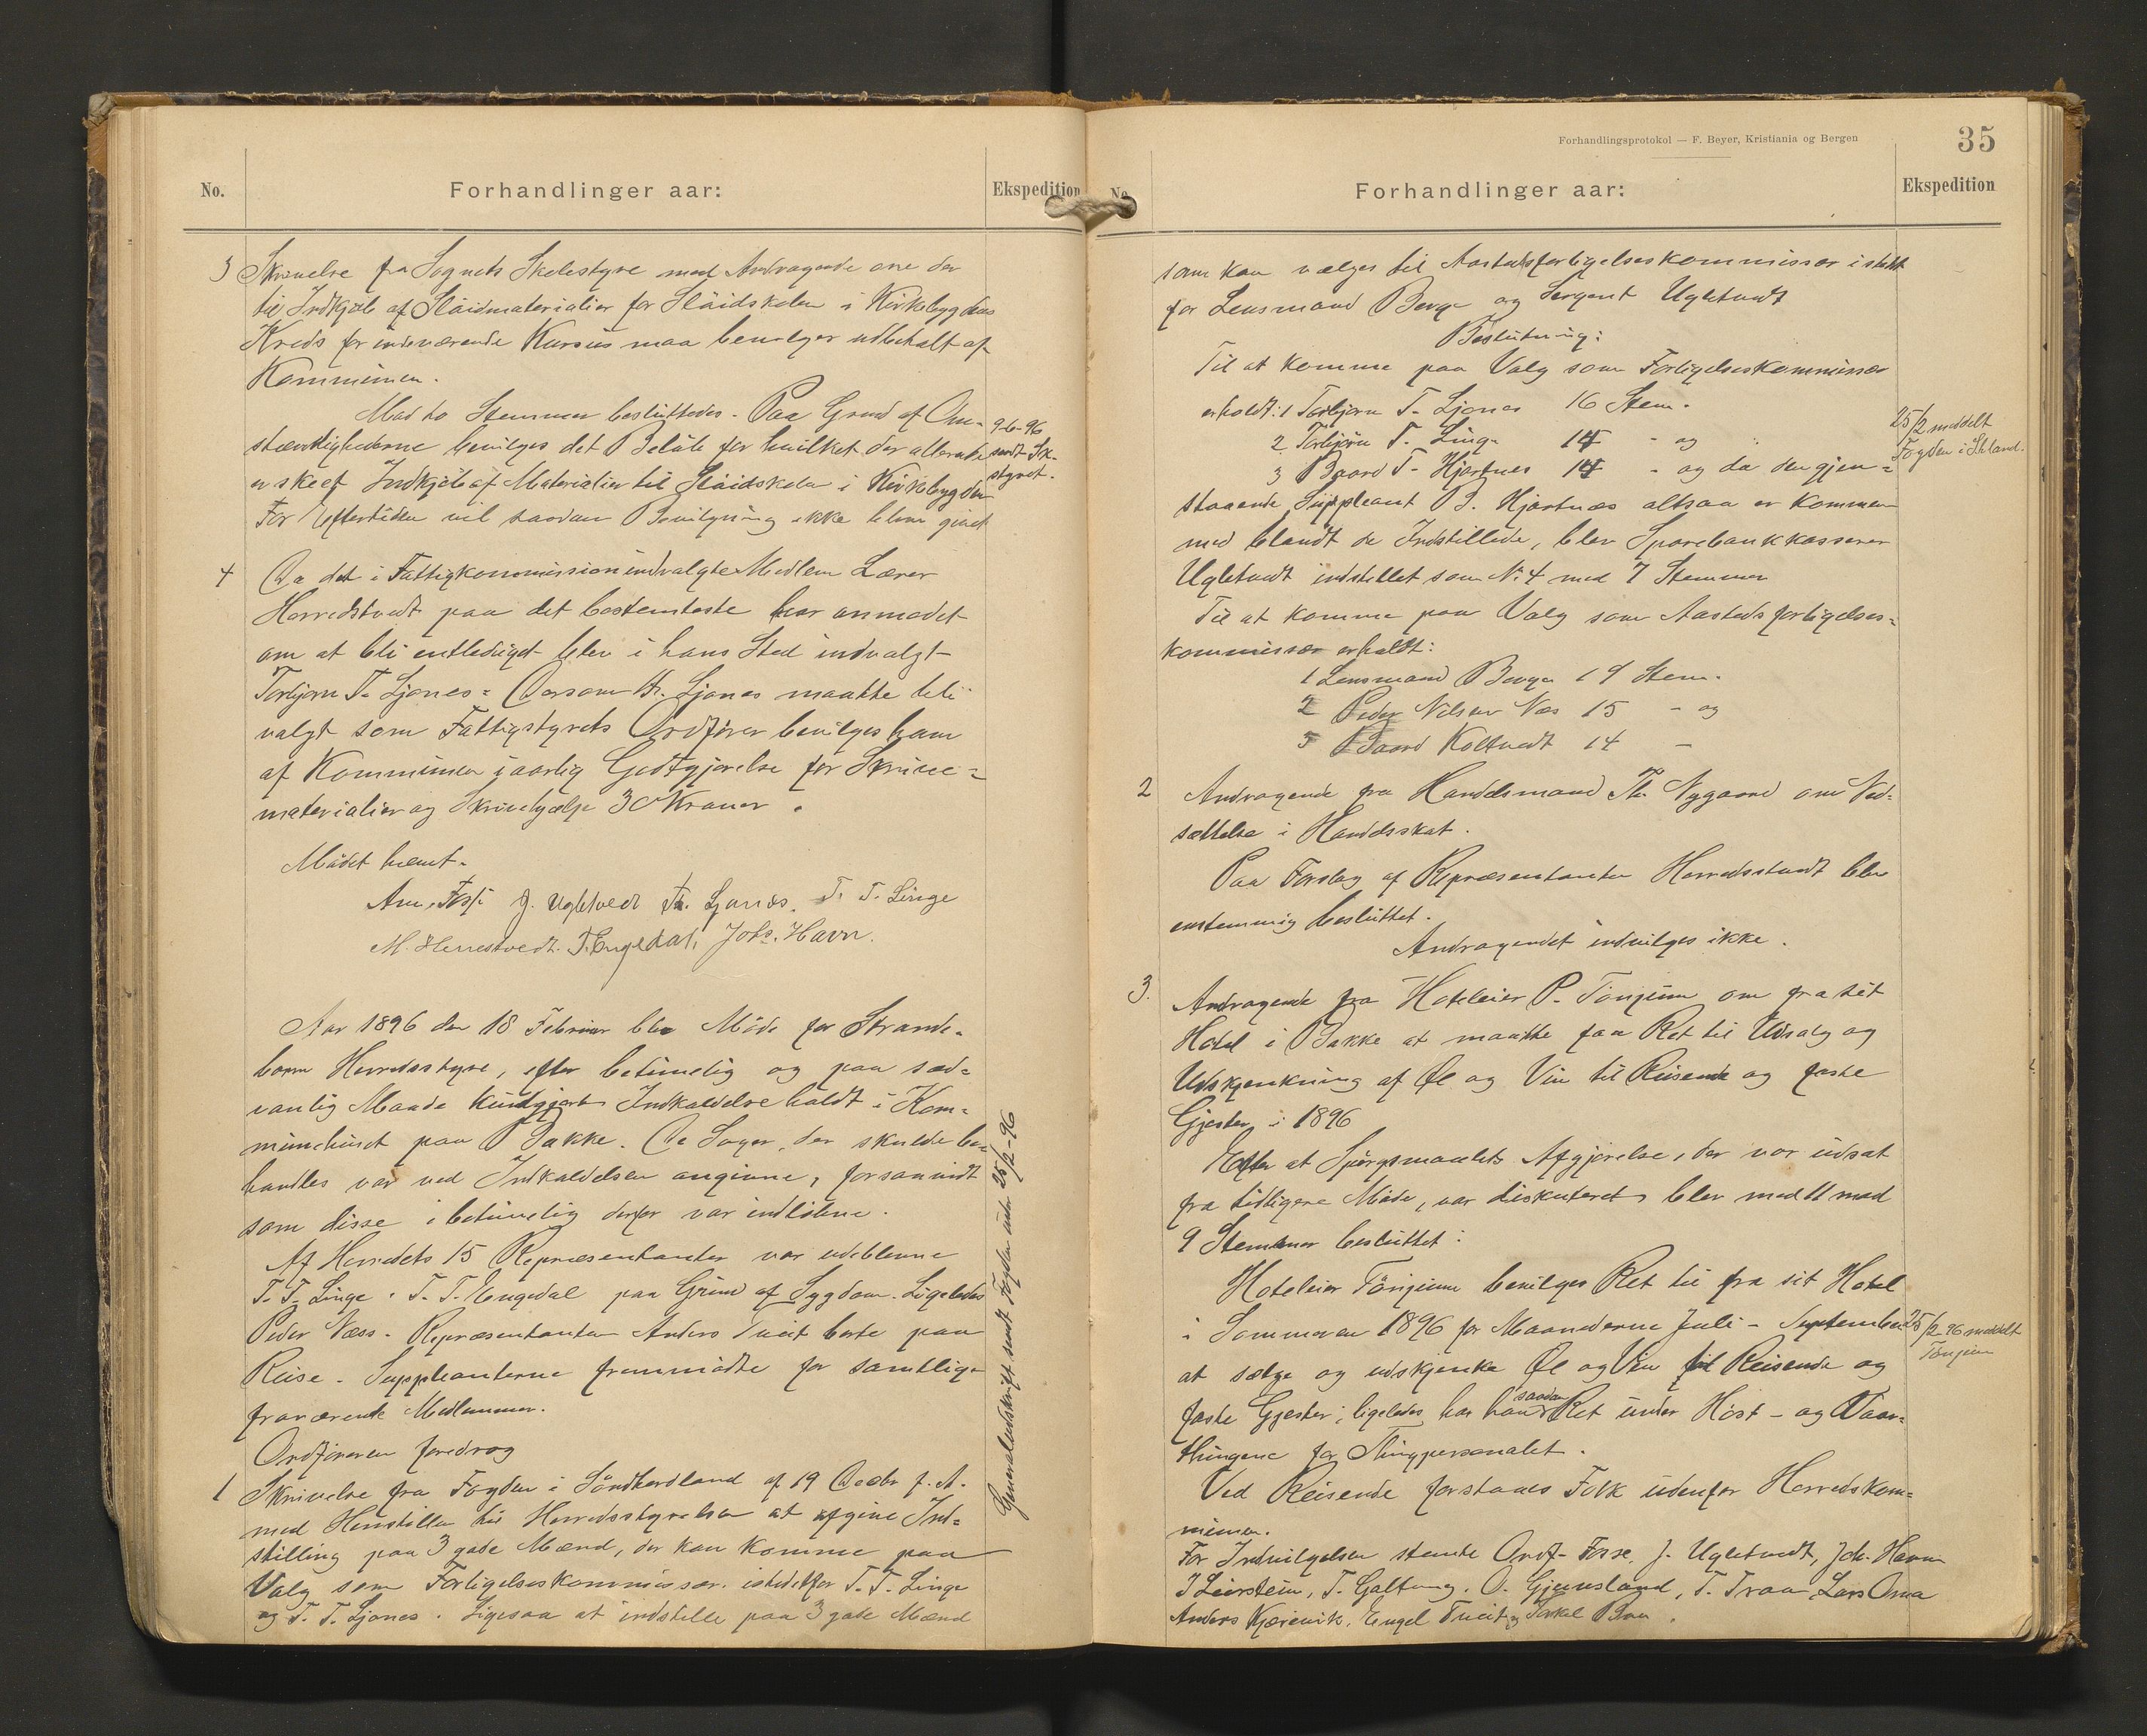 No.
Forhandlinger aar:
Ekspedition
3 Skrivelse fra Sognets Skolestyre med Andragende om der
til Indkjöb af Slöidmaterialier for Slöidskolen i Kirkebygdens
Kreds for indeværende Kursus maa bevilges udbetalt af
Kommunen.
Mod to Stemmer besluttedes. Paa Grund af Om-
stændighederne bevilges det Belöb for hvilket der allerede
er skeet Indkjöb af Materialier til Slöidskolen i Kirkebygden
For Eftertiden vil saadan Bevilgning ikke blive givet
9-6-96
sendt Sk-
styret.
4 Da det i Fattigkommission indvalgte Medlem Lærer
Herredstvedt paa det bestemteste har anmodet
om at bli entlediget blev i hans Sted indvalgt
Torbjörn T. Ljones = Dersom Hr. Ljones maatte bli
valgt som Fattigstyrets Ordförer bevilges ham
af Kommunen i aarlig Godtgjörelse for Skrive=
materialier og Skrivehjælp 30 Kroner.
Mödet hævet.
Am. Fosse J. Ugletvedt Th. Ljones. T. T. Linge
M. Herrestvedt. T. Engedal. Johs. Havn.
Aar 1896 den 18 Februar blev Möde for Strande-
barm Herredsstyre, efter betimelig og paa sæd=
vanlig Maade kundgjort Indkaldelse holdt i Kom=
munehuset paa Bakke. De Sager, der skulde be-
handles var ved Indkaldelsen angivne, forsaavidt
som disse i betimelig derfor var indløbne.
Af Herredets 15 Repræsentanter var udeblevne
T. T. Linge. T. T. Engedal paa Grund af Sygdom. Ligeledes
Peder Næss. Repræsentanten Anders Tveit borte paa
Reise. Suppleanterne fremmödte for samtlige
fraværende Medlemmer.
Ordföreren foredrog
1 Skrivelse fra Fogden i Söndhordland af 19 Decbr f. A.
med Henstillen til Herredsstyrelsen at afgive Ind=
stilling paa 3 gode Mænd, der kan komme paa
Valg som Forligelseskommissær istedetfor T. T. Linge
og T. T. Ljones. Ligesaa at indstille paa 3 gode Mænd
Generaludskrift sendt Fogden 25/2-96
Forhandlingsprotokol — F. Beyer, Kristiania og Bergen
35
No.
Forhandlinger aar:
Ekspedition
som kan vælges til Aastedsforligelseskommissær istedet
for Lensmand Berge og Sergent Ugletvedt
Beslutning:
Til at komme paa Valg som Forligelseskommissær
erholdt: 1 Torbjörn T. Ljones 16 Stem.
2 Torbjörn T. Linge 14 - og
3 Baard T. Hjartnes 14 - og da den gjen=
25/2 meddelt
Fogden i S.hland.
staaende Suppleant B. Hjartnæs altsaa er kommen
med blandt de Indstillede, blev Sparebankkasserer
Ugletvedt indstillet som No 4 med 7 Stemmer
Til at komme paa Valg som Aastedsforligelses=
kommissær erholdt:
1 Lensmand Berge 19 Stem.
2 Peder Nilsen Næs 15 - og
3 Baard Koltvedt 14 -
2 Andragende fra Handelsmand Th. Nygaard om Ned=
sættelse i Handelsskat.
Paa Forslag af Repræsentanten Herredsstvedt blev
enstemmig besluttet.
Andragendet indvilges ikke.
3. Andragende fra Hoteleier P. Tönjum om fra sit
Hotel i Bakke at maatte faa Ret til Udsalg og
Udskjenkning af Öl og Vin til Reisende og faste
Gjester i 1896
Efter at Spörgsmaalets Afgjørelse, der var udsat
fra tidligere Möde, var diskuteret, blev med 11 mod
9 Stemmer besluttet:
Hoteleier Tönjum bevilges Ret til fra sit Hotel
i Sommeren 1896 for Maanederne Juli - September
25/2 96 meddelt
Tönjum
at sælge og udskjenke Öl og Vin til Reisende og
faste Gjester; ligeledes har han saadan Ret under Höst- og Vaar=
thingene for Thingpersonalet.
Ved Reisende forstaaes Folk udenfor Herredskom=
munen.
For Indvilgelsen stemte Ordf. Fosse, J. Ugletvedt, Joh. Havn
T. Galtung. O. Gjerusland, T. Traa, Lars Oma
Anders Kjærevik, Engel Tveit og Torkel Boa.